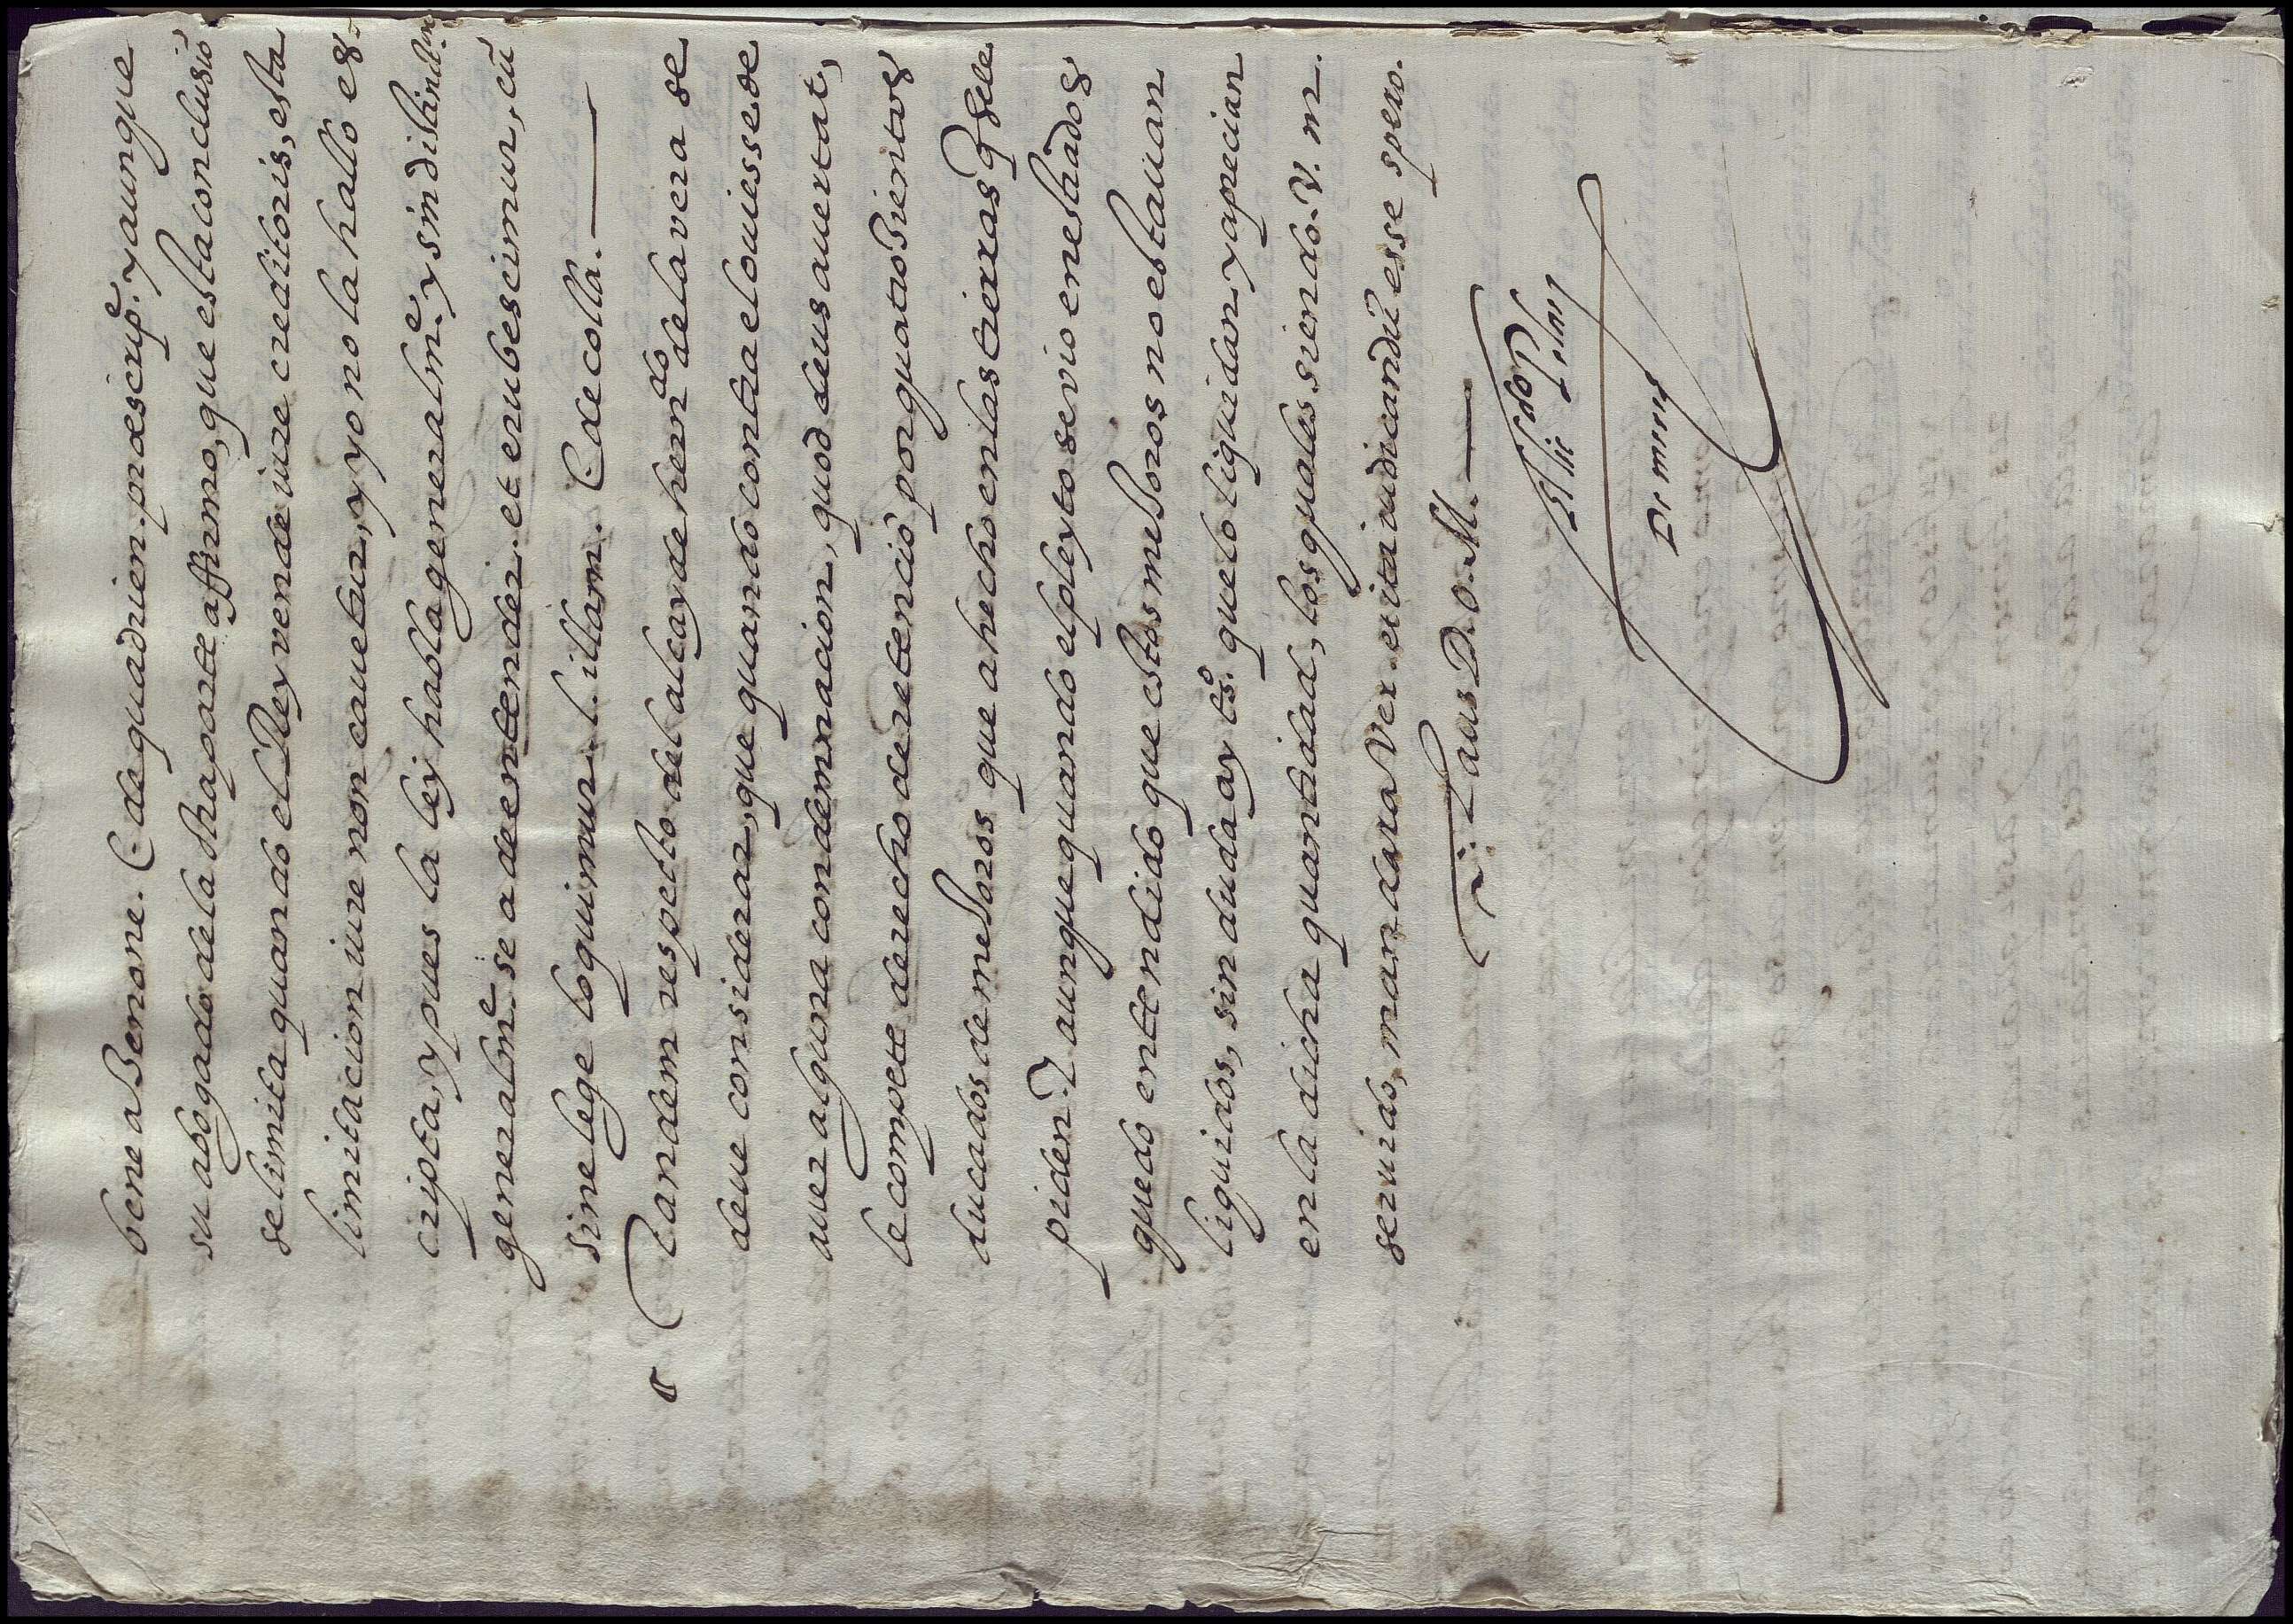 bene a Zenone. C. de quadrien. præscrip.e y aunque
su abogado de la otra parte affirmo, que esta conclusió
se limita quando el Rey vende iure creditoris, esta
limitacion iure non cauetur, y yo no la hallo es-
cripta, y pues la ley habla generalm.e y sin distinct.on
generalm.e se a de entender. et erubescimur, cū
sine lege loquimur. l. illam. C. de colla.
Tandem respecto del alcayde hern.do de la vera se
deue considerar, que quando contra el ouiesse de
auer alguna condemnacion, quod deus auertat,
le compete derecho de retenció por quatrosientos
ducados de mejoros que a hecho en las tierras q̃ sele
piden. Y aunque quando el pleyto se vio en estrados
quedo entendido que estos mejoros no estauan
liquidos, sin duda ay ts.o que lo liquidan y aprecian
en la dicha quantidad, los quales siendo. V. m.
seruido, mandara ver. et ita iudicandū esse spero.
Laus D. O. M.